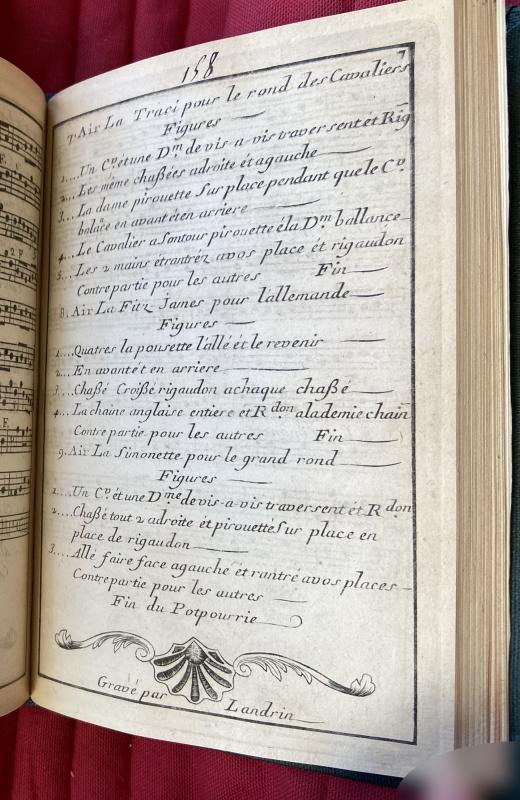 158
7
7. Air La Traci pour le rond des Cavaliers
Figures
1.... Un C.er et une D.m de vis-a-vis traversent et Rig
2.... Les même chaßées adroite et agauche
3.... La dame pirouette Sur place pendant que le C.er
balan̄ce en avant et en arriere
4.... Le Cavalier a Sontour pirouette éla D.m ballance
5.... Les 2 mains étrantréz avos place et rigaudon
Contre partie pour les autres Fin
8. Air La Fitz James pour l'allemande
Figures
1.... Quatres la pousette l'allé et le revenir
2.... En avant et en arriere
3.... Chaßé Croißé rigaudon achaque chaßé
4... La chaine anglaise entiere et R.don alademie chain
Contre partie pour les autres Fin
9. Air La Simonette pour le grand rond
Figures
1.... Un C.er et une D.me de vis-a-vis traversent et R.don
2.... Chaßé tout 2 adroite et pirouettéSur place en
place de rigaudon
3.... Allé faire face agauche et rantré avos places
Contre partie pour les autres
Fin du Potpourrie
Gravé par Landrin